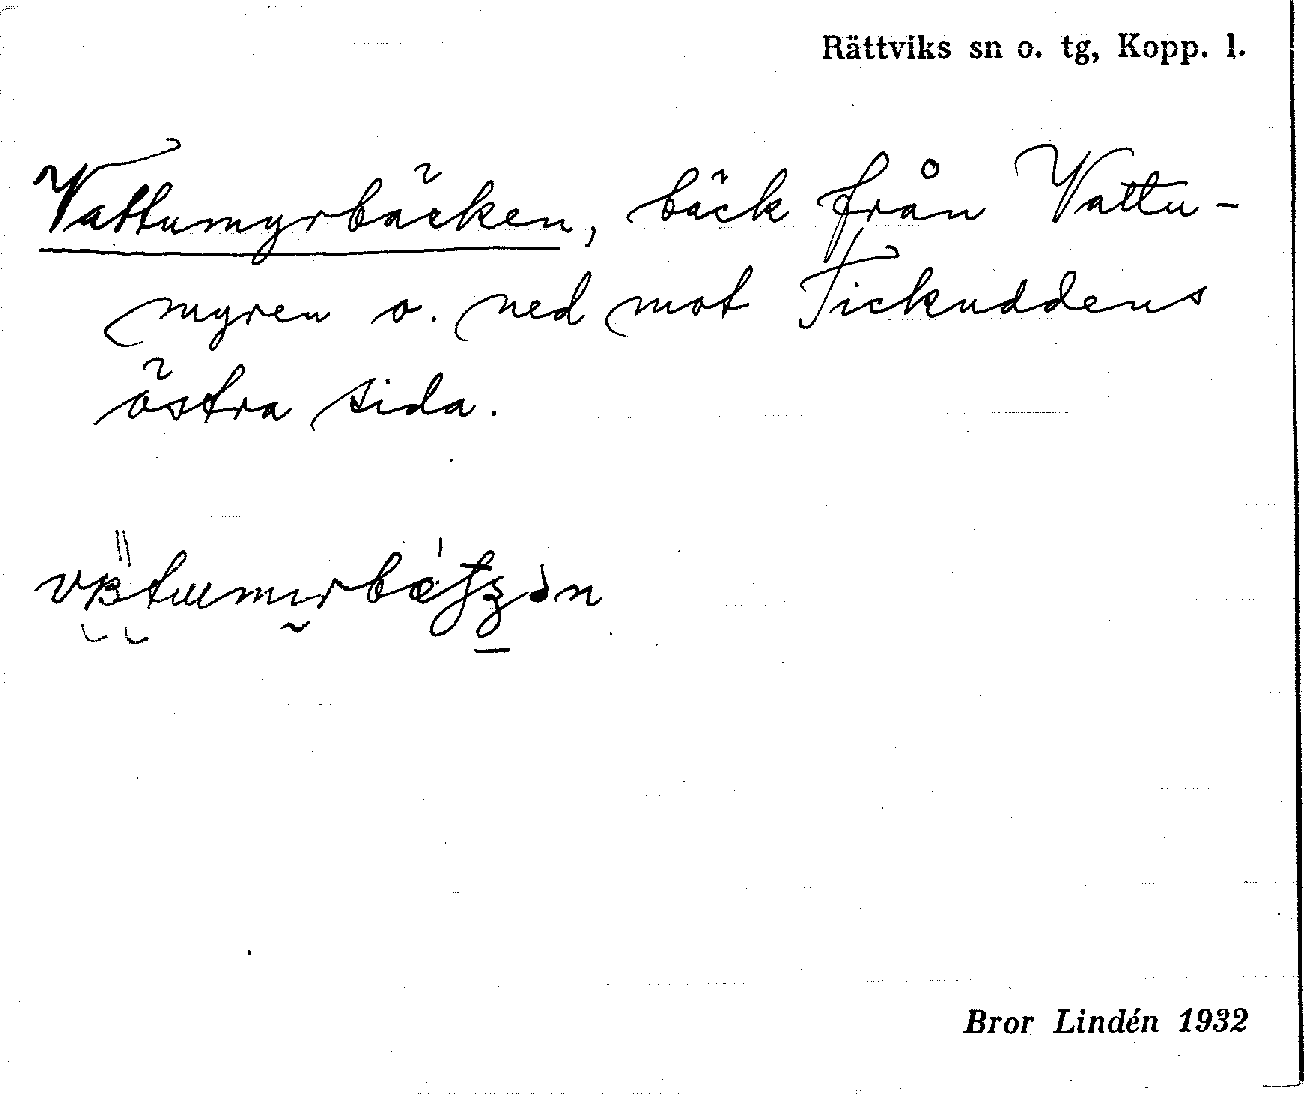 Rättviks sn o. tg, Kopp. l.
Vattumyrbäcken, bäck från Vattu-
myren o. ned mot Fickuddens
östra sida.
Bror Lindén 1932